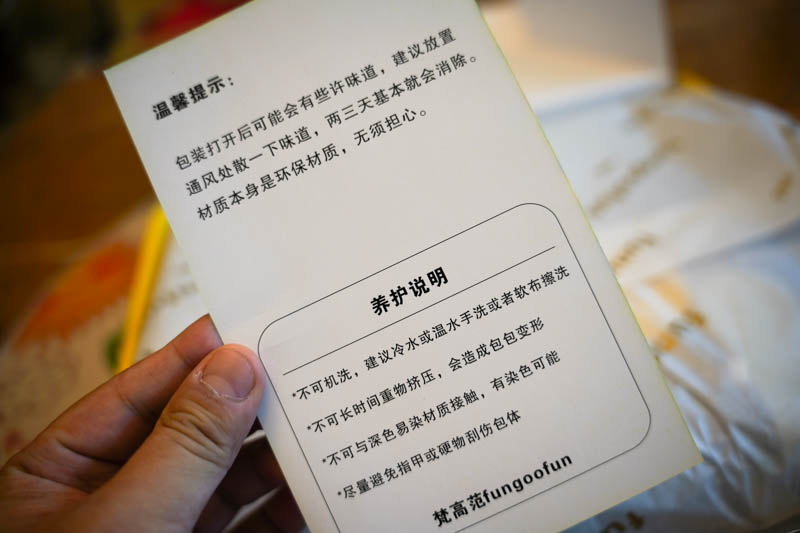 温馨提示：
包装打开后可能会有些许味道，建议放置
通风处散一下味道，两三天基本就会消除。
材质本身是环保材质，无须担心。
养护说明
*不可机洗，建议冷水或温水手洗或者软布擦洗
*不可长时间重物挤压，会造成包包变形
*不可与深色易染材质接触，有染色可能
*尽量避免指甲或硬物刮伤包体
梵高范fungoofun